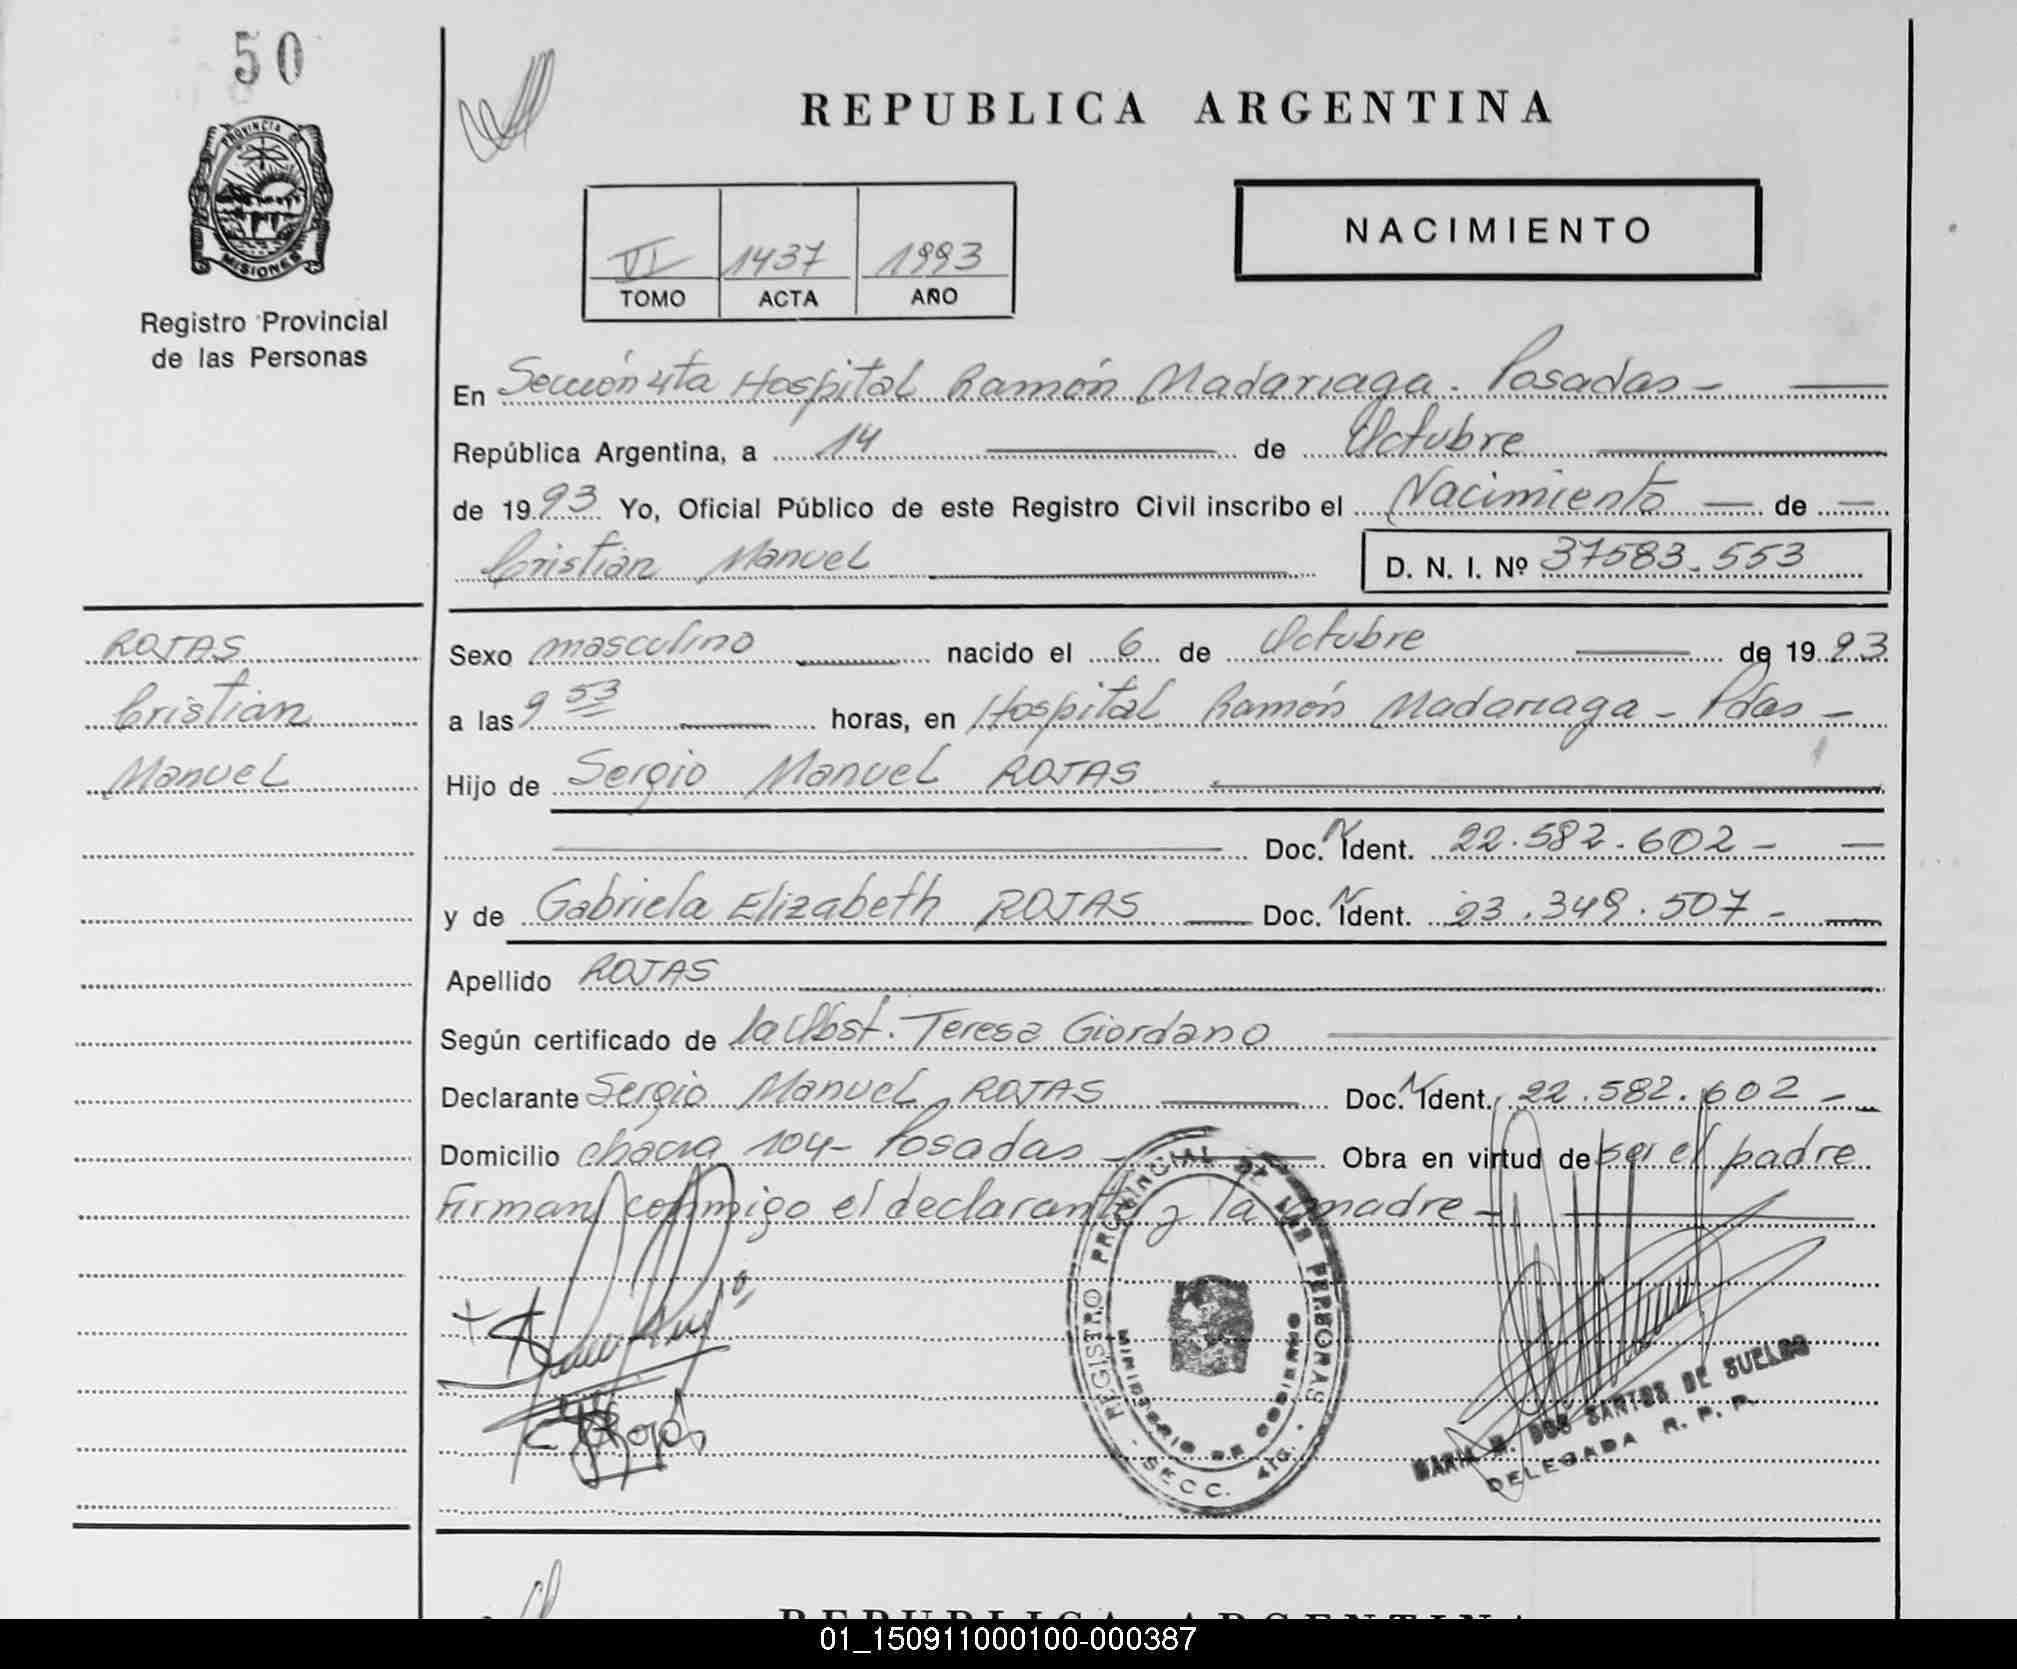 50
PROVINCIA DE
MISIONES
Registro Provincial
de las Personas
REPUBLICA ARGENTINA
VI 1437 1993
TOMO ACTA AÑO
NACIMIENTO
En Sección 4ta Hospital Ramón Madariaga. Posadas -
República Argentina, a 14 de Octubre
de 1993 Yo, Oficial Público de este Registro Civil inscribo el Nacimiento de
Cristian Manuel D. N. I. Nº 37583.553
ROJAS
Cristian
Manuel
Sexo masculino nacido el 6 de Octubre de 1993
a las 9 53 horas, en Hospital Ramón Madariaga - Pdas -
Hijo de Sergio Manuel ROJAS
Doc. N Ident. 22.582.602 -
y de Gabriela Elizabeth ROJAS Doc. N Ident. 23.349.507 -
Apellido ROJAS
Según certificado de la Obst. Teresa Giordano
Declarante Sergio Manuel ROJAS Doc. N Ident. 22.582.602 -
Domicilio chacra 104 - Posadas - Obra en virtud de ser el padre
Firman conmigo el declarante y la madre -
REGISTRO PROVINCIAL DE LAS PERSONAS
MINISTERIO DE GOBIERNO
- SECC. 4ta. -
Rojas
MARIA M. DOS SANTOS DE SUELDO
DELEGADA R. P. P.
REPUBLICA ARGENTINA
01_150911000100-000387